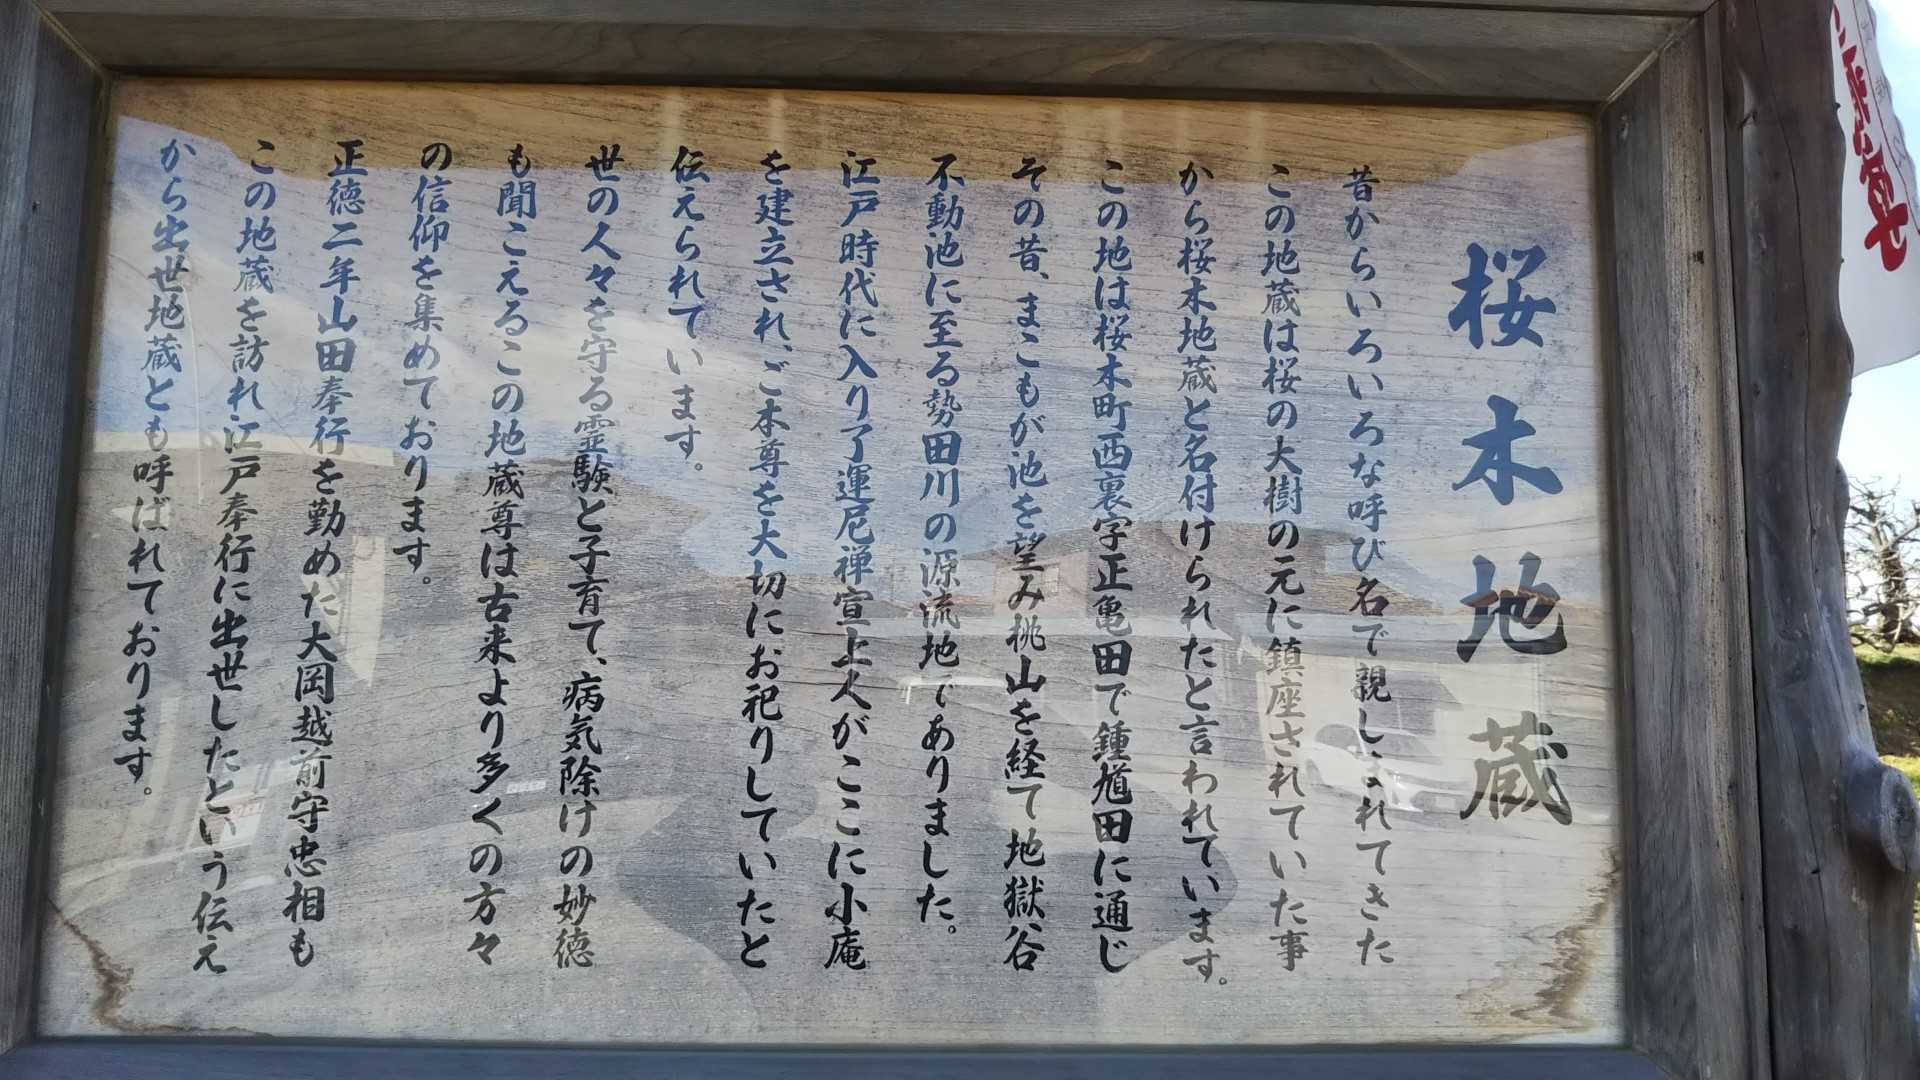 桜木地蔵
昔からいろいろな呼び名で親しまれてきた
この地蔵は桜の大樹の元に鎮座されていた事
から桜木地蔵と名付けられたと言われています。
この地は桜木町西裏字正亀田で鍾馗田に通じ
その昔、まこもが池を望み桃山を経て地獄谷
不動池に至る勢田川の源流地でありました。
江戸時代に入り了運尼禅宣上人がここに小庵
を建立され、ご本尊を大切にお祀りしていたと
伝えられています。
世の人々を守る霊験と子育て、病気除けの妙徳
も聞こえるこの地蔵尊は古来より多くの方々
の信仰を集めております。
正徳二年山田奉行を勤めた大岡越前守忠相も
この地蔵を訪れ江戸奉行に出世したという伝え
から出世地蔵とも呼ばれております。